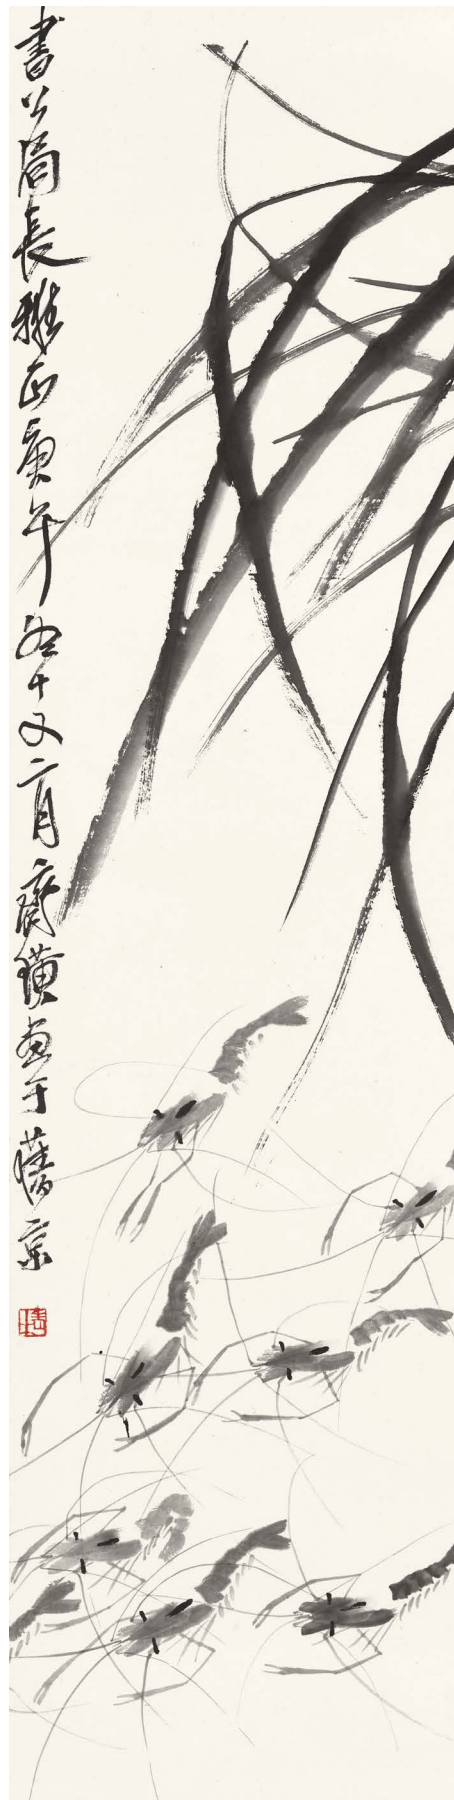 書公局長雅正庚午冬十又二月齊璜畫于舊京